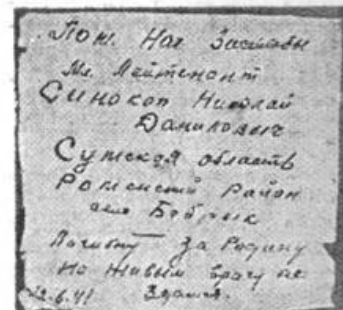 Пом. Нач Заставы
Мл. Лейтенант
Синокоп Николай
Данилович
Сумская область
Роменский район
село Бобрык
Погибну за Родину
но живым врагу не
здамся.
22.6.41